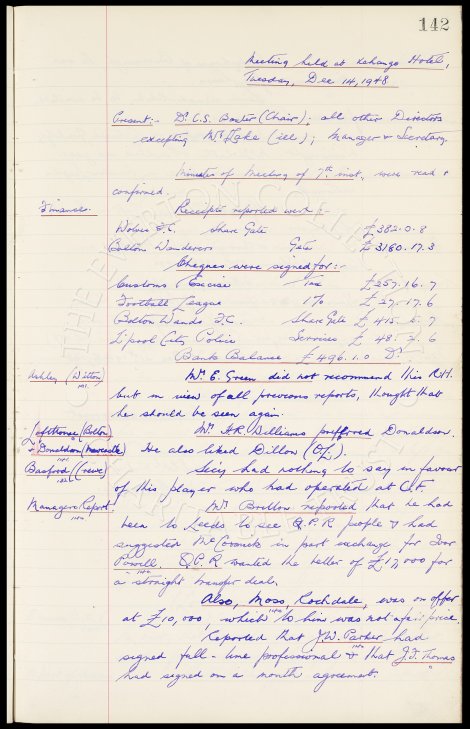 142
Meeting held at Exchange Hotel,
Tuesday, Dec 14, 1948
Present:- Dr. C.S. Baxter (Chair); all other Directors
excepting Mr. Lake (ill); Manager & Secretary.
Minutes of Meeting of 7th inst, were read &
confirmed.
Finances.
Receipts reported were :-
Wolves F.C. Share Gate £382.0.8
Bolton Wanderers Gate £3160.17.3
Cheques were signed for:-
Customs / Excise Tax £257.16.7
Football League 1% £27.17.6
Bolton Wands F.C. Share Gate £415. 7
L'pool City Police Services £48. 6
Bank Balance £496.1.0 Dr
Ashley (Witton)
Mr. E. Green did not recommend this R.H.
but in view of all previous reports, thought that
he should be seen again.
Lofthouse (Bolton)
& Donaldson (Newcastle)
Mr. H.R. Williams preferred Donaldson.
He also liked Dillon (O.L.).
Basford (Crewe)
Secy had nothing to say in favour
of this player who had operated at C.F.
Managers Report.
Mr. Britton reported that he had
been to Leeds to see Q.P.R people & had
suggested McCormick in part exchange for Ivor
Powell. Q.P.R wanted the better of £17,000 for
a straight transfer deal.
Also, Moss, Rochdale, was on offer
at £10,000, which to him was not a fair price.
Reported that J.W. Parker had
signed full-time professional & that J.F. Thomas
had signed on a month agreement.